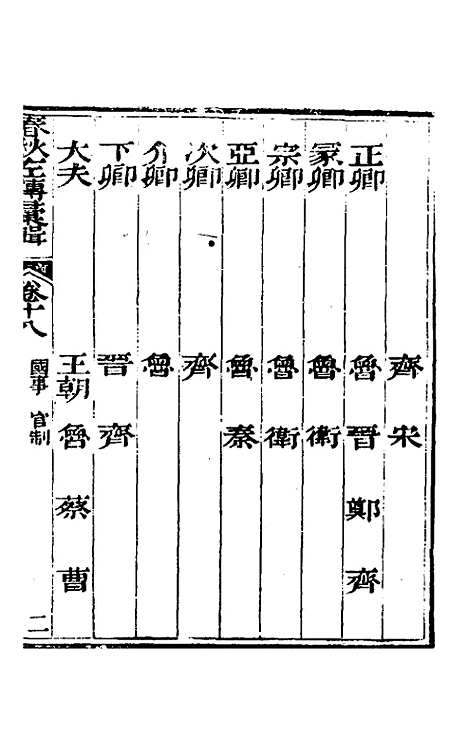 齊 宋
正卿 魯 晉 鄭 齊
冢卿 魯 衛
宗卿 魯 衛
亞卿 魯 秦
次卿 齊
介卿 魯
下卿 晉 齊
大夫 王朝 魯 蔡 曹
春秋左傳彙輯 卷十八 國事 官制 二